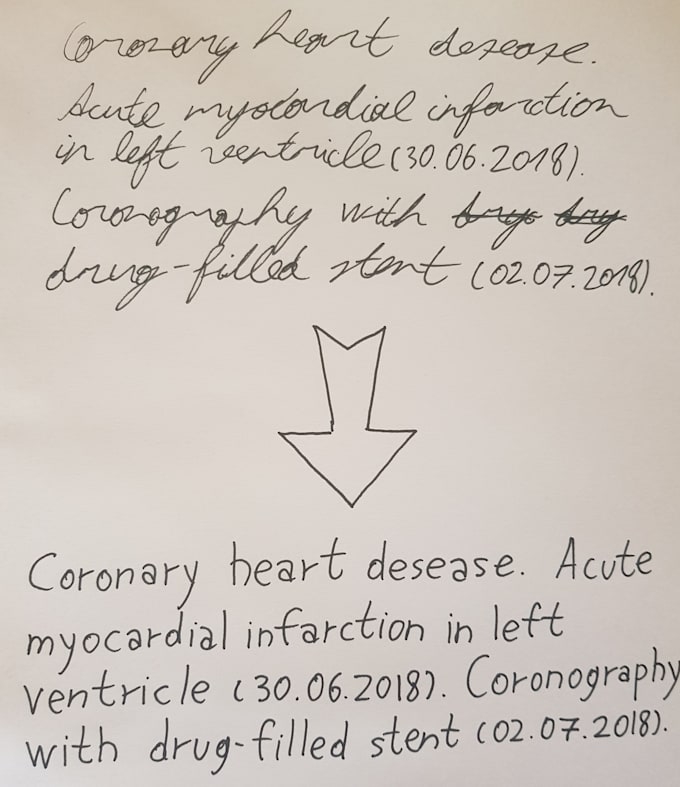 Coronary heart desease.
Acute myocardial infarction
in left ventricle (30.06.2018).
Coronography with
drug-filled stent (02.07.2018).
Coronary heart desease. Acute
myocardial infarction in left
ventricle (30.06.2018). Coronography
with drug-filled stent (02.07.2018).